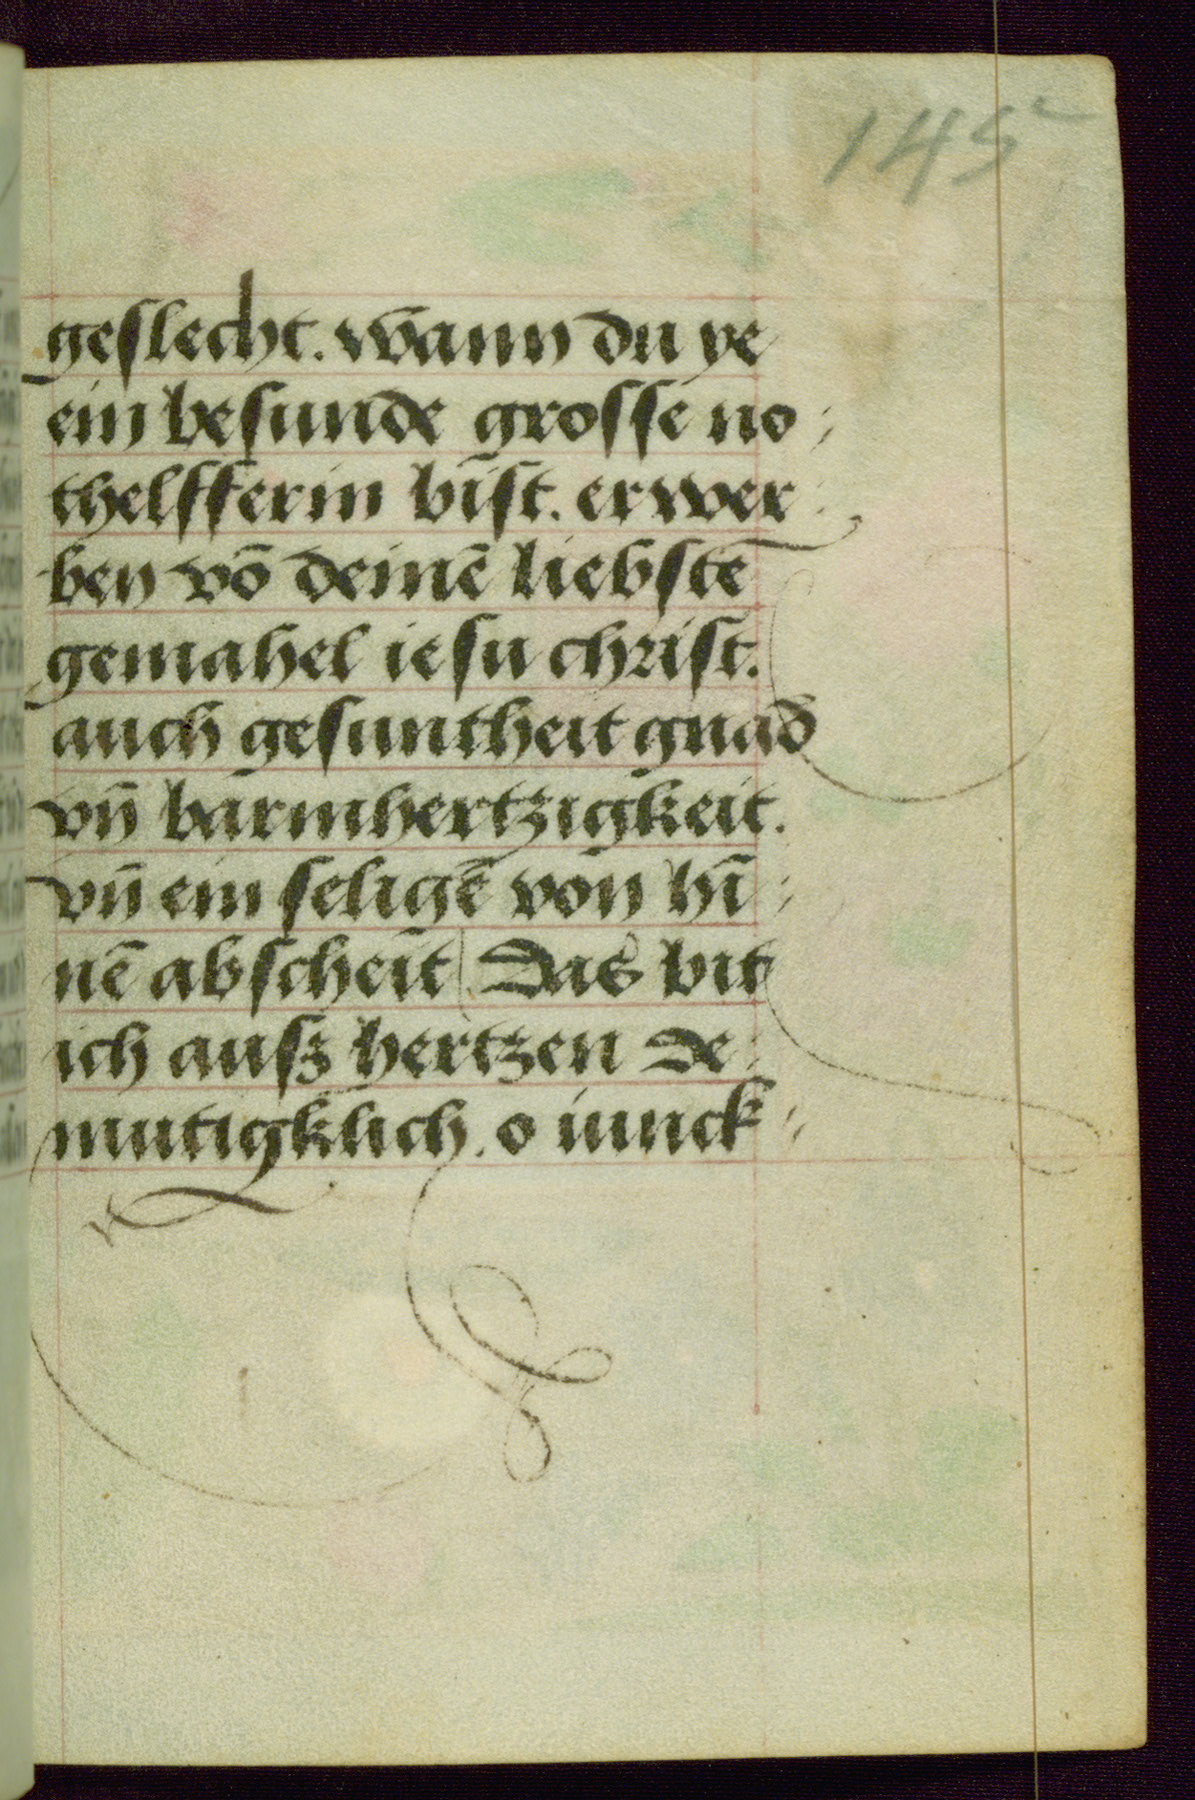 145
geslecht. wann du ye
ein besunde grosse no-
thelfferin bist. erwer-
ben vō deinē liebstē
gemahel iesu christ.
auch gesuntheit gnad
vn̄ barmhertzigkeit.
vn̄ ein seligē von hī-
nē abscheit Das bit
ich ausz hertzen de-
mutigklich. o iunck-